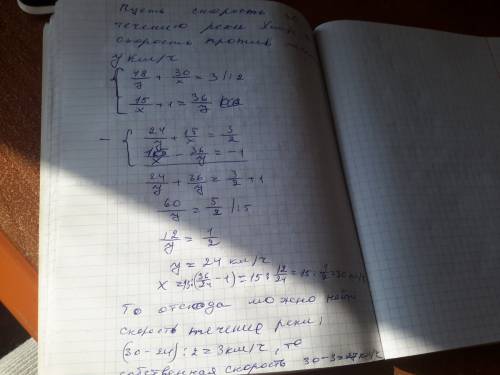 Пусть скорость
течению реки x
скорость против
y км/ч
48/y + 30/x = 3 |:2
15/x + 1 = 36/y
24/y + 15/x = 3/2
15/x - 36/y = -1
24/y + 36/y = 3/2 + 1
60/y = 5/2 |:5
12/y = 1/2
y = 24 км/ч
x = 15:(36/24 - 1) = 15 : 12/24 = 15 : 1/2 = 30 км/ч
То отсюда можно найти
скорость течение реки,
(30-24):2 = 3км/ч, то
собственная скорость 30-3=27км/ч